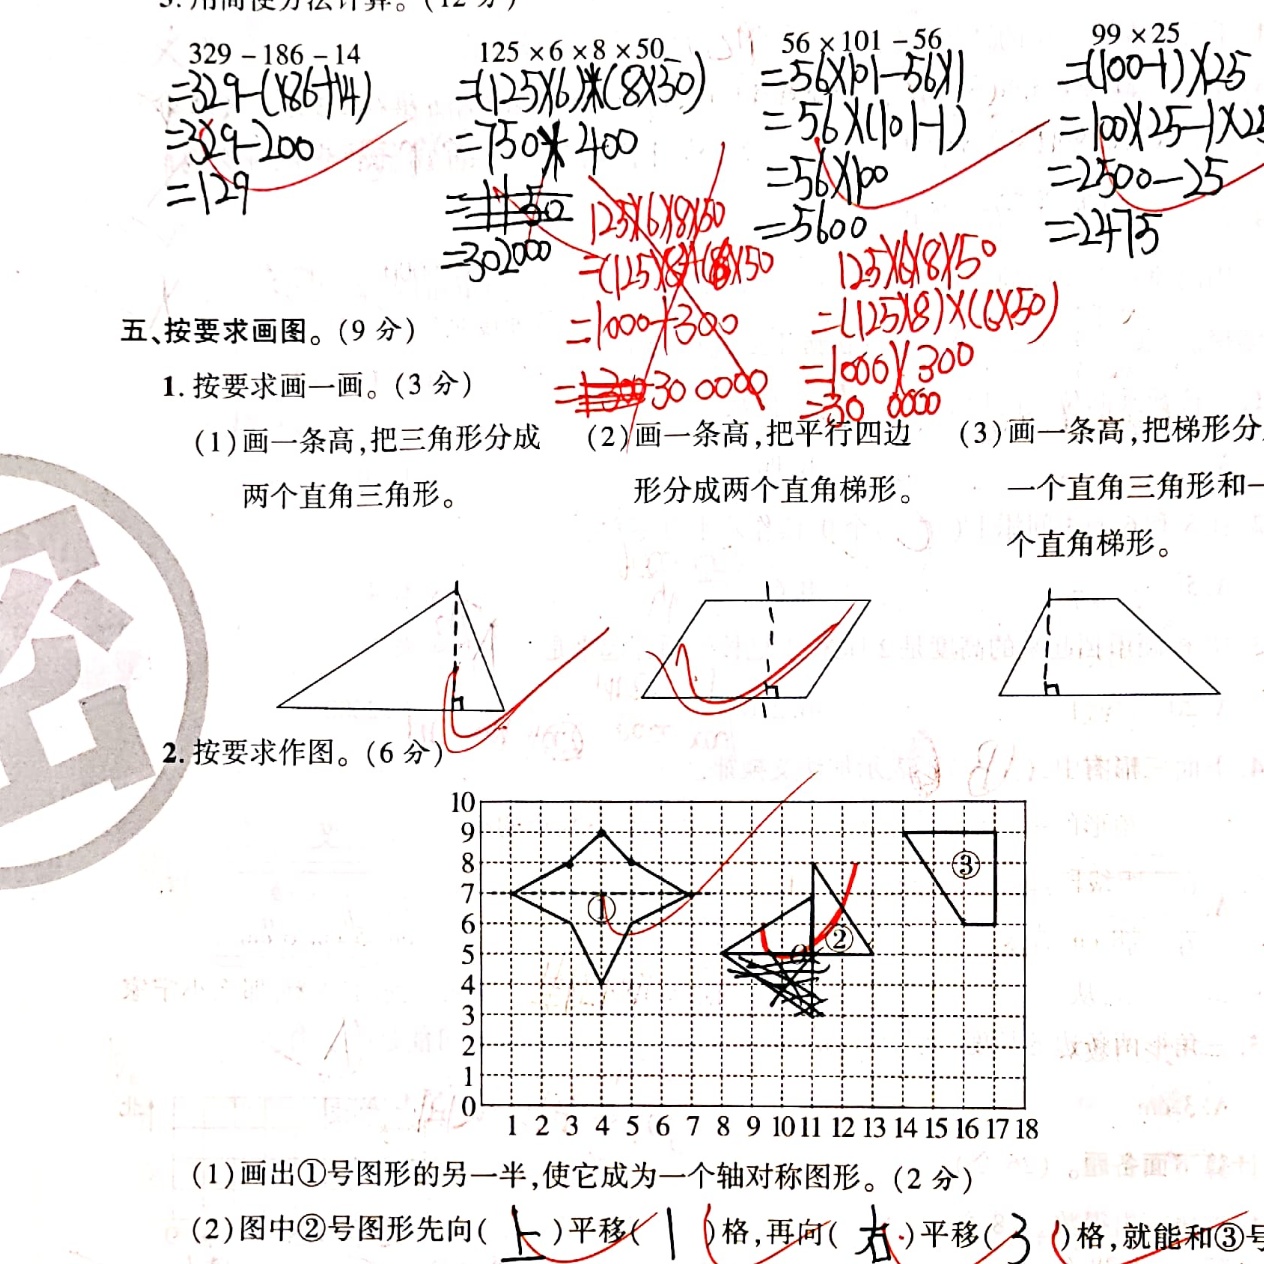 3. 用简便方法计算。(12 分)
329 - 186 - 14
=329-(186+14)
=329-200
=129
125 × 6 × 8 × 50
=(125×6)×(8×50)
=750×400
=1150
=302000
125×6×8×50
=1000+300
=1300 300000
125×6×8×50
=(125×8)×(6×50)
=1000×300
=300000
56 × 101 - 56
=56×101-56×1
=56×(101-1)
=56×100
=5600
99 × 25
=(100-1)×25
=100×25-1×25
=2500-25
=2475
五、按要求画图。(9 分)
1. 按要求画一画。(3 分)
(1)画一条高,把三角形分成
两个直角三角形。
(2)画一条高,把平行四边
形分成两个直角梯形。
(3)画一条高,把梯形分
一个直角三角形和一
个直角梯形。
密
2. 按要求作图。(6 分)
10
9
8
7
6
5
4
3
2
1
0
① ② ③
1 2 3 4 5 6 7 8 9 10 11 12 13 14 15 16 17 18
(1)画出①号图形的另一半,使它成为一个轴对称图形。(2 分)
(2)图中②号图形先向( 上 )平移( 1 )格,再向( 右 )平移( 3 )格,就能和③号